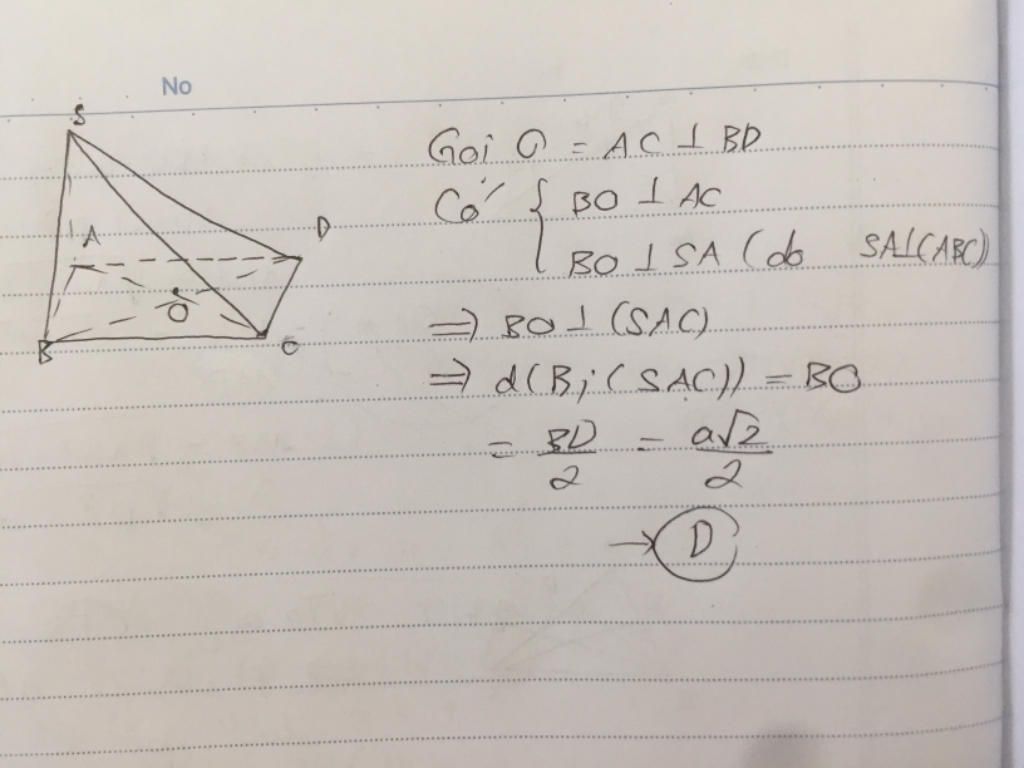 No
S
A
D
O
B
C
Gọi O = AC ⊥ BD
Có { BO ⊥ AC
BO ⊥ SA (do SA⊥(ABC))
=> BO ⊥ (SAC)
=> d(B; (SAC)) = BO
= BD/2 = a√2/2
→ D